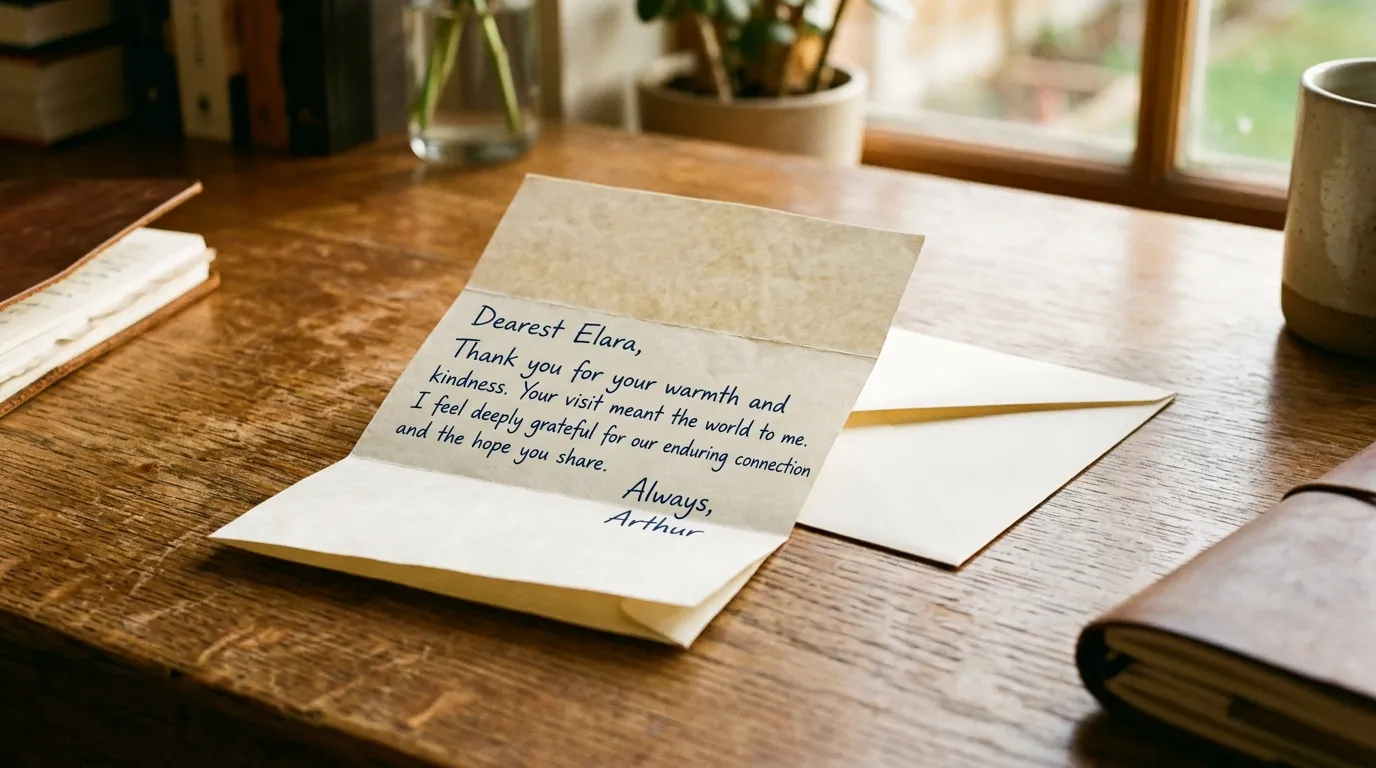 Dearest Elara,
Thank you for your warmth and
kindness. Your visit meant the world to me.
I feel deeply grateful for our enduring connection
and the hope you share.
Always,
Arthur